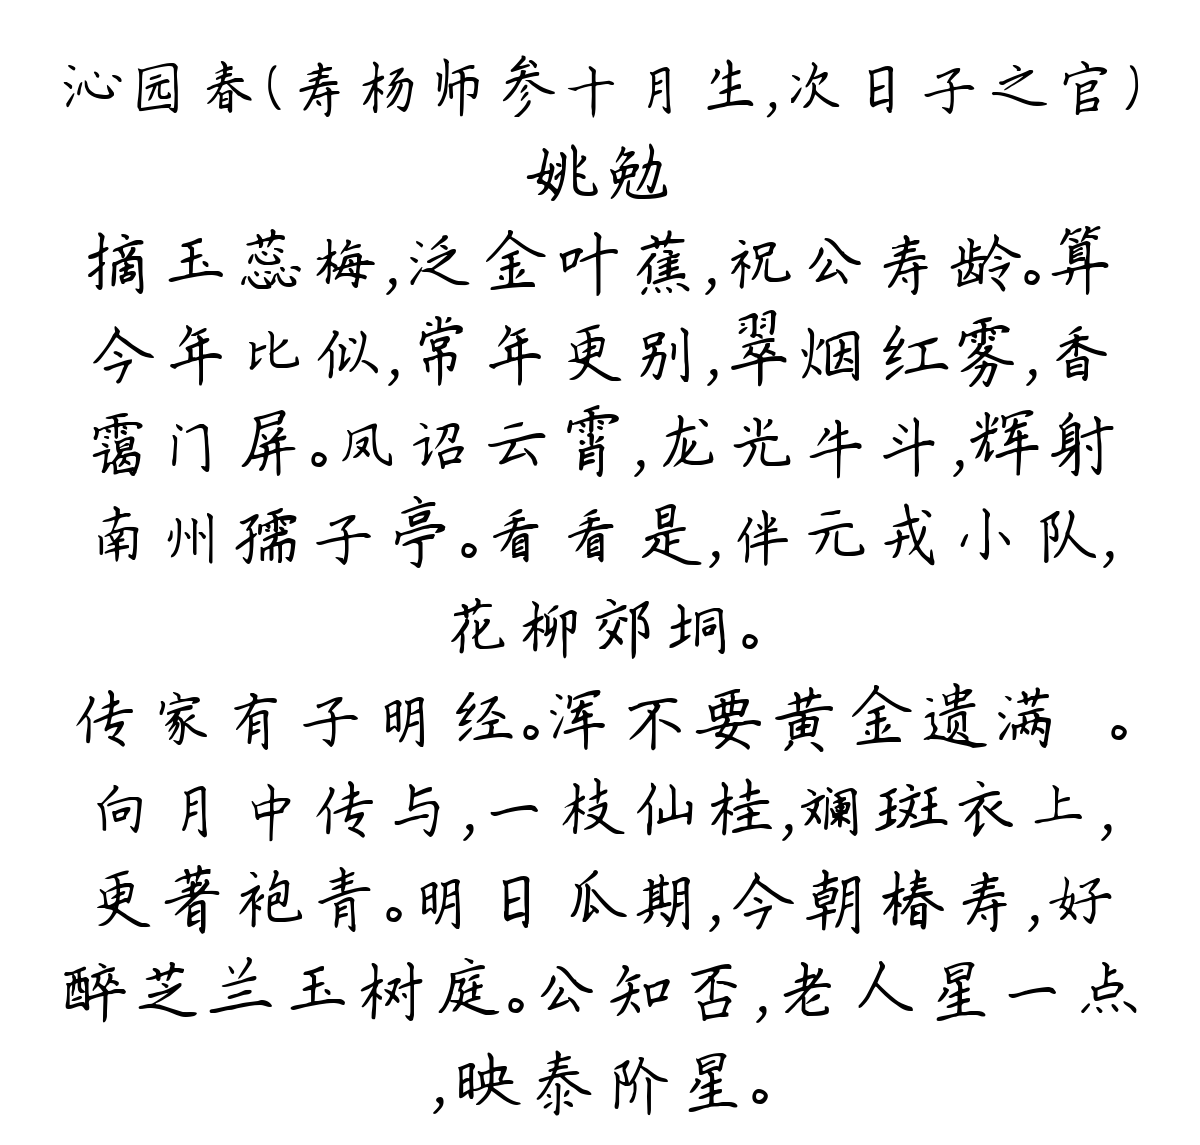 沁园春(寿杨师参十月生,次日子之官)
姚勉
摘玉蕊梅,泛金叶蕉,祝公寿龄。算
今年比似,常年更别,翠烟红雾,香
霭门屏。凤诏云霄,龙光牛斗,辉射
南州孺子亭。看看是,伴元戎小队,
花柳郊坰。
传家有子明经。浑不要黄金遗满 。
向月中传与,一枝仙桂,斓斑衣上,
更著袍青。明日瓜期,今朝椿寿,好
醉芝兰玉树庭。公知否,老人星一点
,映泰阶星。